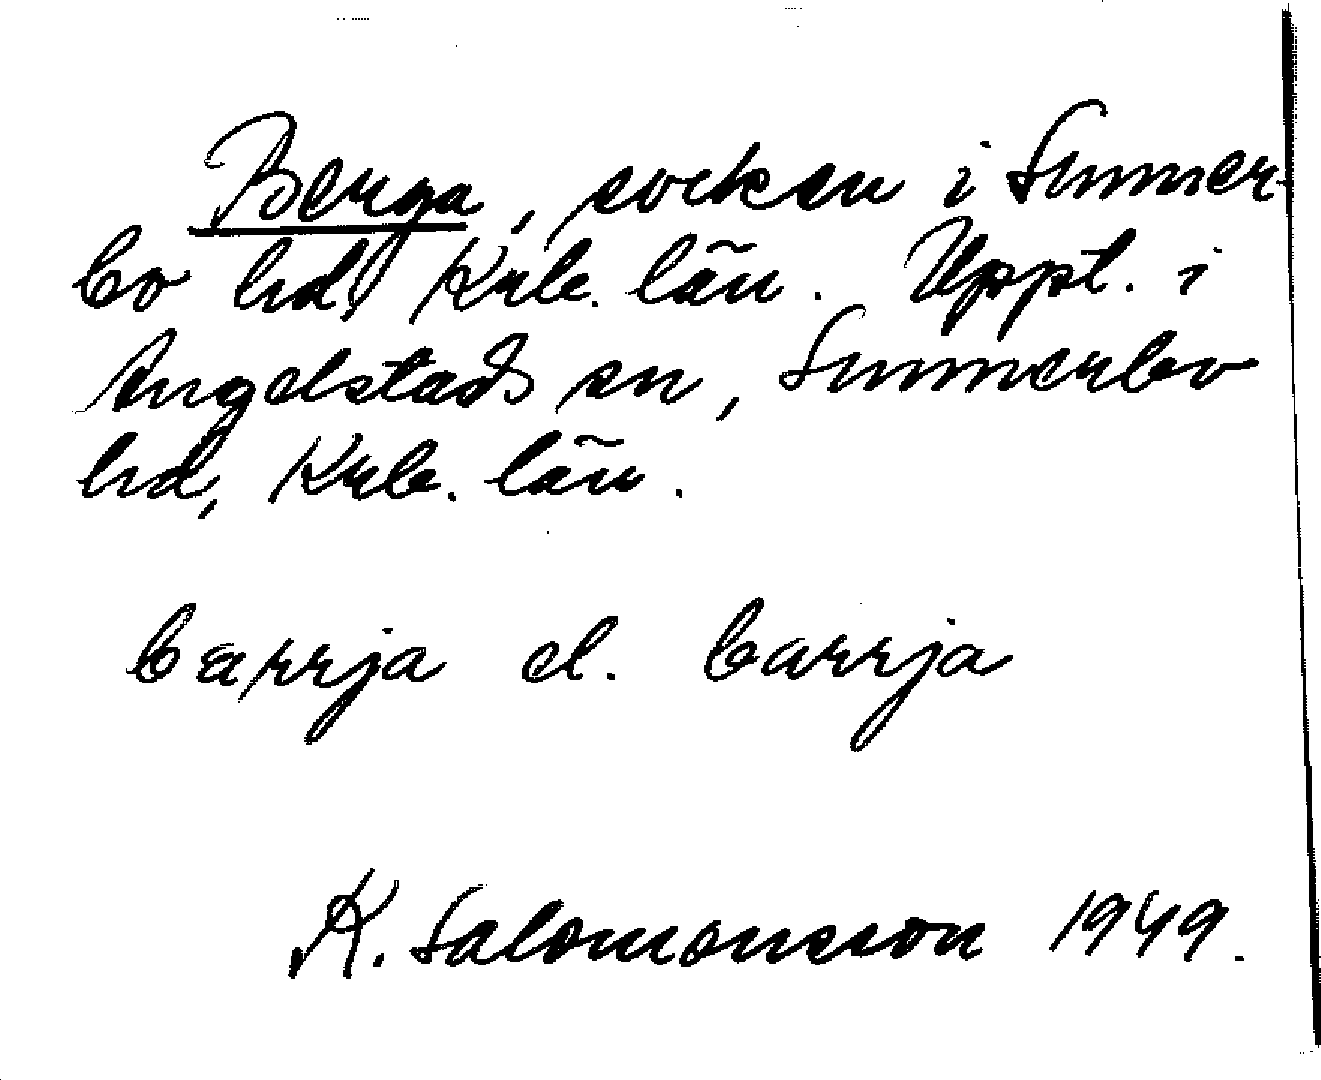 Berga, socken i Sunner-
bo hd, Krb. län. Uppt. i
Angelstads sn, Sunnerbo
hd, Krb. län.
bærrja el. barrja
K. Salomonsson 1949.